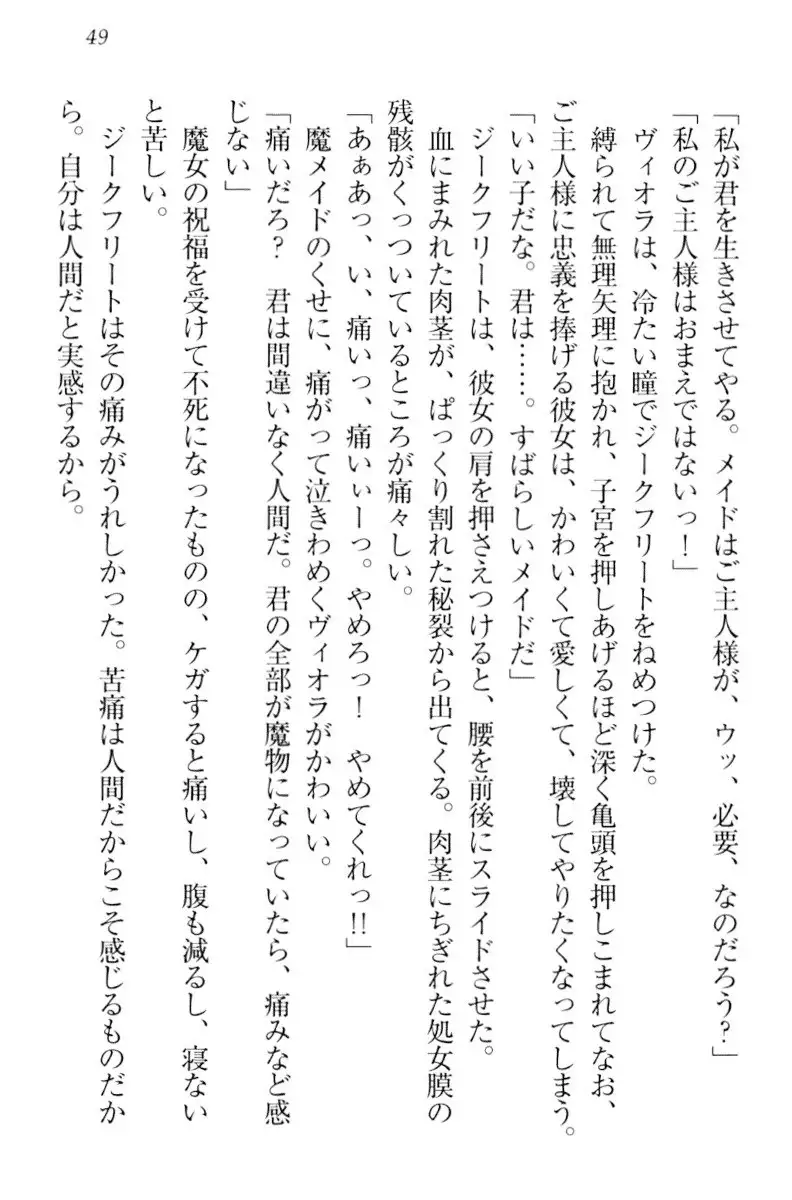 49
「私が君を生きさせてやる。メイドはご主人様が、ウッ、必要、なのだろう?」
「私のご主人様はおまえではないっ!」
ヴィオラは、冷たい瞳でジークフリートをねめつけた。
縛られて無理矢理に抱かれ、子宮を押しあげるほど深く亀頭を押しこまれてなお、
ご主人様に忠義を捧げる彼女は、かわいくて愛しくて、壊してやりたくなってしまう。
「いい子だな。君は……。すばらしいメイドだ」
ジークフリートは、彼女の肩を押さえつけると、腰を前後にスライドさせた。
血にまみれた肉茎が、ぱっくり割れた秘裂から出てくる。肉茎にちぎれた処女膜の
残骸がくっついているところが痛々しい。
「あぁあっ、い、痛いっ、痛いぃーっ。やめろっ! やめてくれっ!!」
魔メイドのくせに、痛がって泣きわめくヴィオラがかわいい。
「痛いだろ? 君は間違いなく人間だ。君の全部が魔物になっていたら、痛みなど感
じない」
魔女の祝福を受けて不死になったものの、ケガすると痛いし、腹も減るし、寝ない
と苦しい。
ジークフリートはその痛みがうれしかった。苦痛は人間だからこそ感じるものだか
ら。自分は人間だと実感するから。